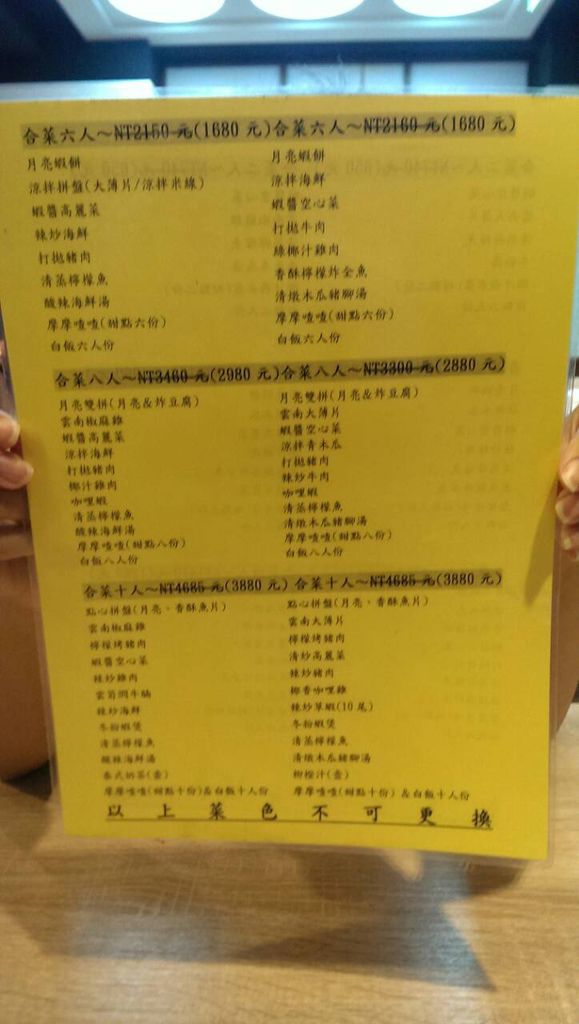 合菜六人～NT2150 元(1680 元)
月亮蝦餅
涼拌拼盤(大薄片/涼拌米線)
蝦醬高麗菜
辣炒海鮮
打拋豬肉
清蒸檸檬魚
酸辣海鮮湯
摩摩喳喳(甜點六份)
白飯六人份
合菜六人～NT2160 元(1680 元)
月亮蝦餅
涼拌海鮮
蝦醬空心菜
打拋牛肉
綠椰汁雞肉
香酥檸檬炸全魚
清燉木瓜豬腳湯
摩摩喳喳(甜點六份)
白飯六人份
合菜八人～NT3460 元(2980 元)
月亮雙拼(月亮&炸豆腐)
雲南椒麻雞
蝦醬高麗菜
涼拌海鮮
打拋豬肉
椰汁雞肉
咖哩蝦
清蒸檸檬魚
酸辣海鮮湯
摩摩喳喳(甜點八份)
白飯八人份
合菜八人～NT3300 元(2880 元)
月亮雙拼(月亮&炸豆腐)
雲南大薄片
蝦醬空心菜
涼拌青木瓜
打拋豬肉
辣炒牛肉
咖哩蝦
清蒸檸檬魚
清燉木瓜豬腳湯
摩摩喳喳(甜點八份)
白飯八人份
合菜十人～NT4685 元(3880 元)
點心拼盤(月亮、香酥魚片)
雲南椒麻雞
檸檬烤豬肉
蝦醬空心菜
辣炒雞肉
雲筍燜牛腩
辣炒海鮮
冬粉蝦煲
清蒸檸檬魚
酸辣海鮮湯
泰式奶茶(壺)
摩摩喳喳(甜點十份)&白飯十人份
合菜十人～NT4685 元(3880 元)
點心拼盤(月亮、香酥魚片)
雲南大薄片
檸檬烤豬肉
清炒高麗菜
辣炒豬肉
椰香咖哩雞
辣炒草蝦(10 尾)
冬粉蝦煲
清蒸檸檬魚
清燉木瓜豬腳湯
柳橙汁(壺)
摩摩喳喳(甜點十份) &白飯十人份
以上菜色不可更換